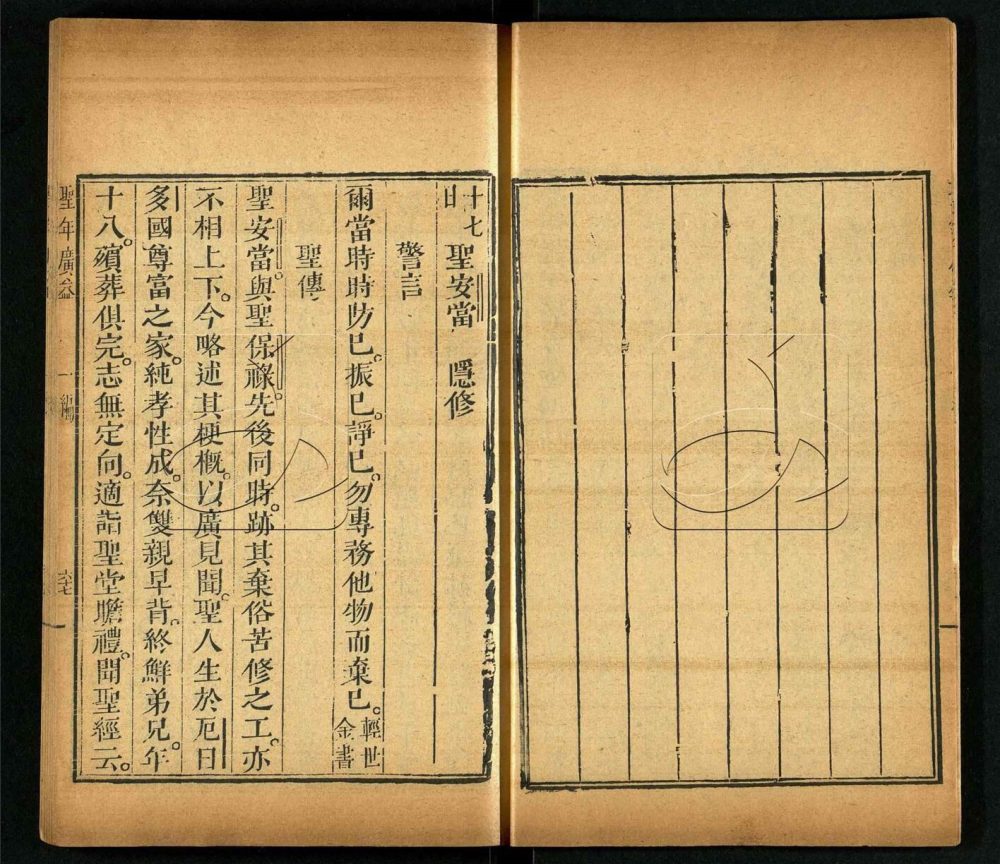 十七日 聖安當 隱修
警言
爾當時時防己。振己。諍己。勿專務他物而棄己。輕世金書
聖傳
聖安當。與聖保祿。先後同時。跡其棄俗苦修之工。亦
不相上下。今略述其梗概。以廣見聞。聖人生於厄日
多國尊富之家。純孝性成。奈雙親早背。終鮮弟兄。年
十八。殯葬俱完。志無定向。適詣聖堂瞻禮。聞聖經云。
聖年廣益 一編 六七